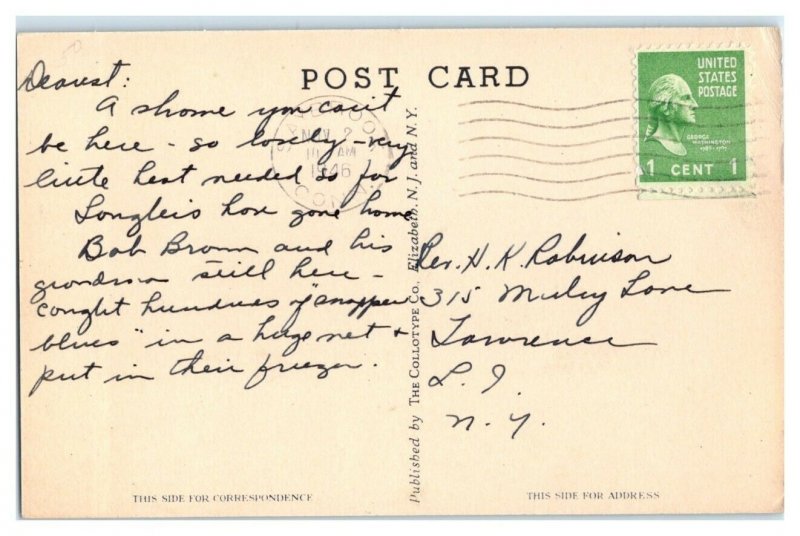 POST CARD
Dearest:
A shame you can't
be here - so lovely - very
little heat needed so far
Longleis have gone home
Bob Brown and his
grandson still here -
caught hundreds of "snapper
blues" in a huge net &
put in their freezer.
NOV 2
AM
1946
CONN
UNITED
STATES
POSTAGE
GEORGE
WASHINGTON
1789-1797
1 CENT 1
Rev. H. K. Robinson
315 Lane
Lawrence
L. I.
N. Y.
Published by THE COLLOTYPE CO., Elizabeth, N. J. and N. Y.
THIS SIDE FOR CORRESPONDENCE
THIS SIDE FOR ADDRESS